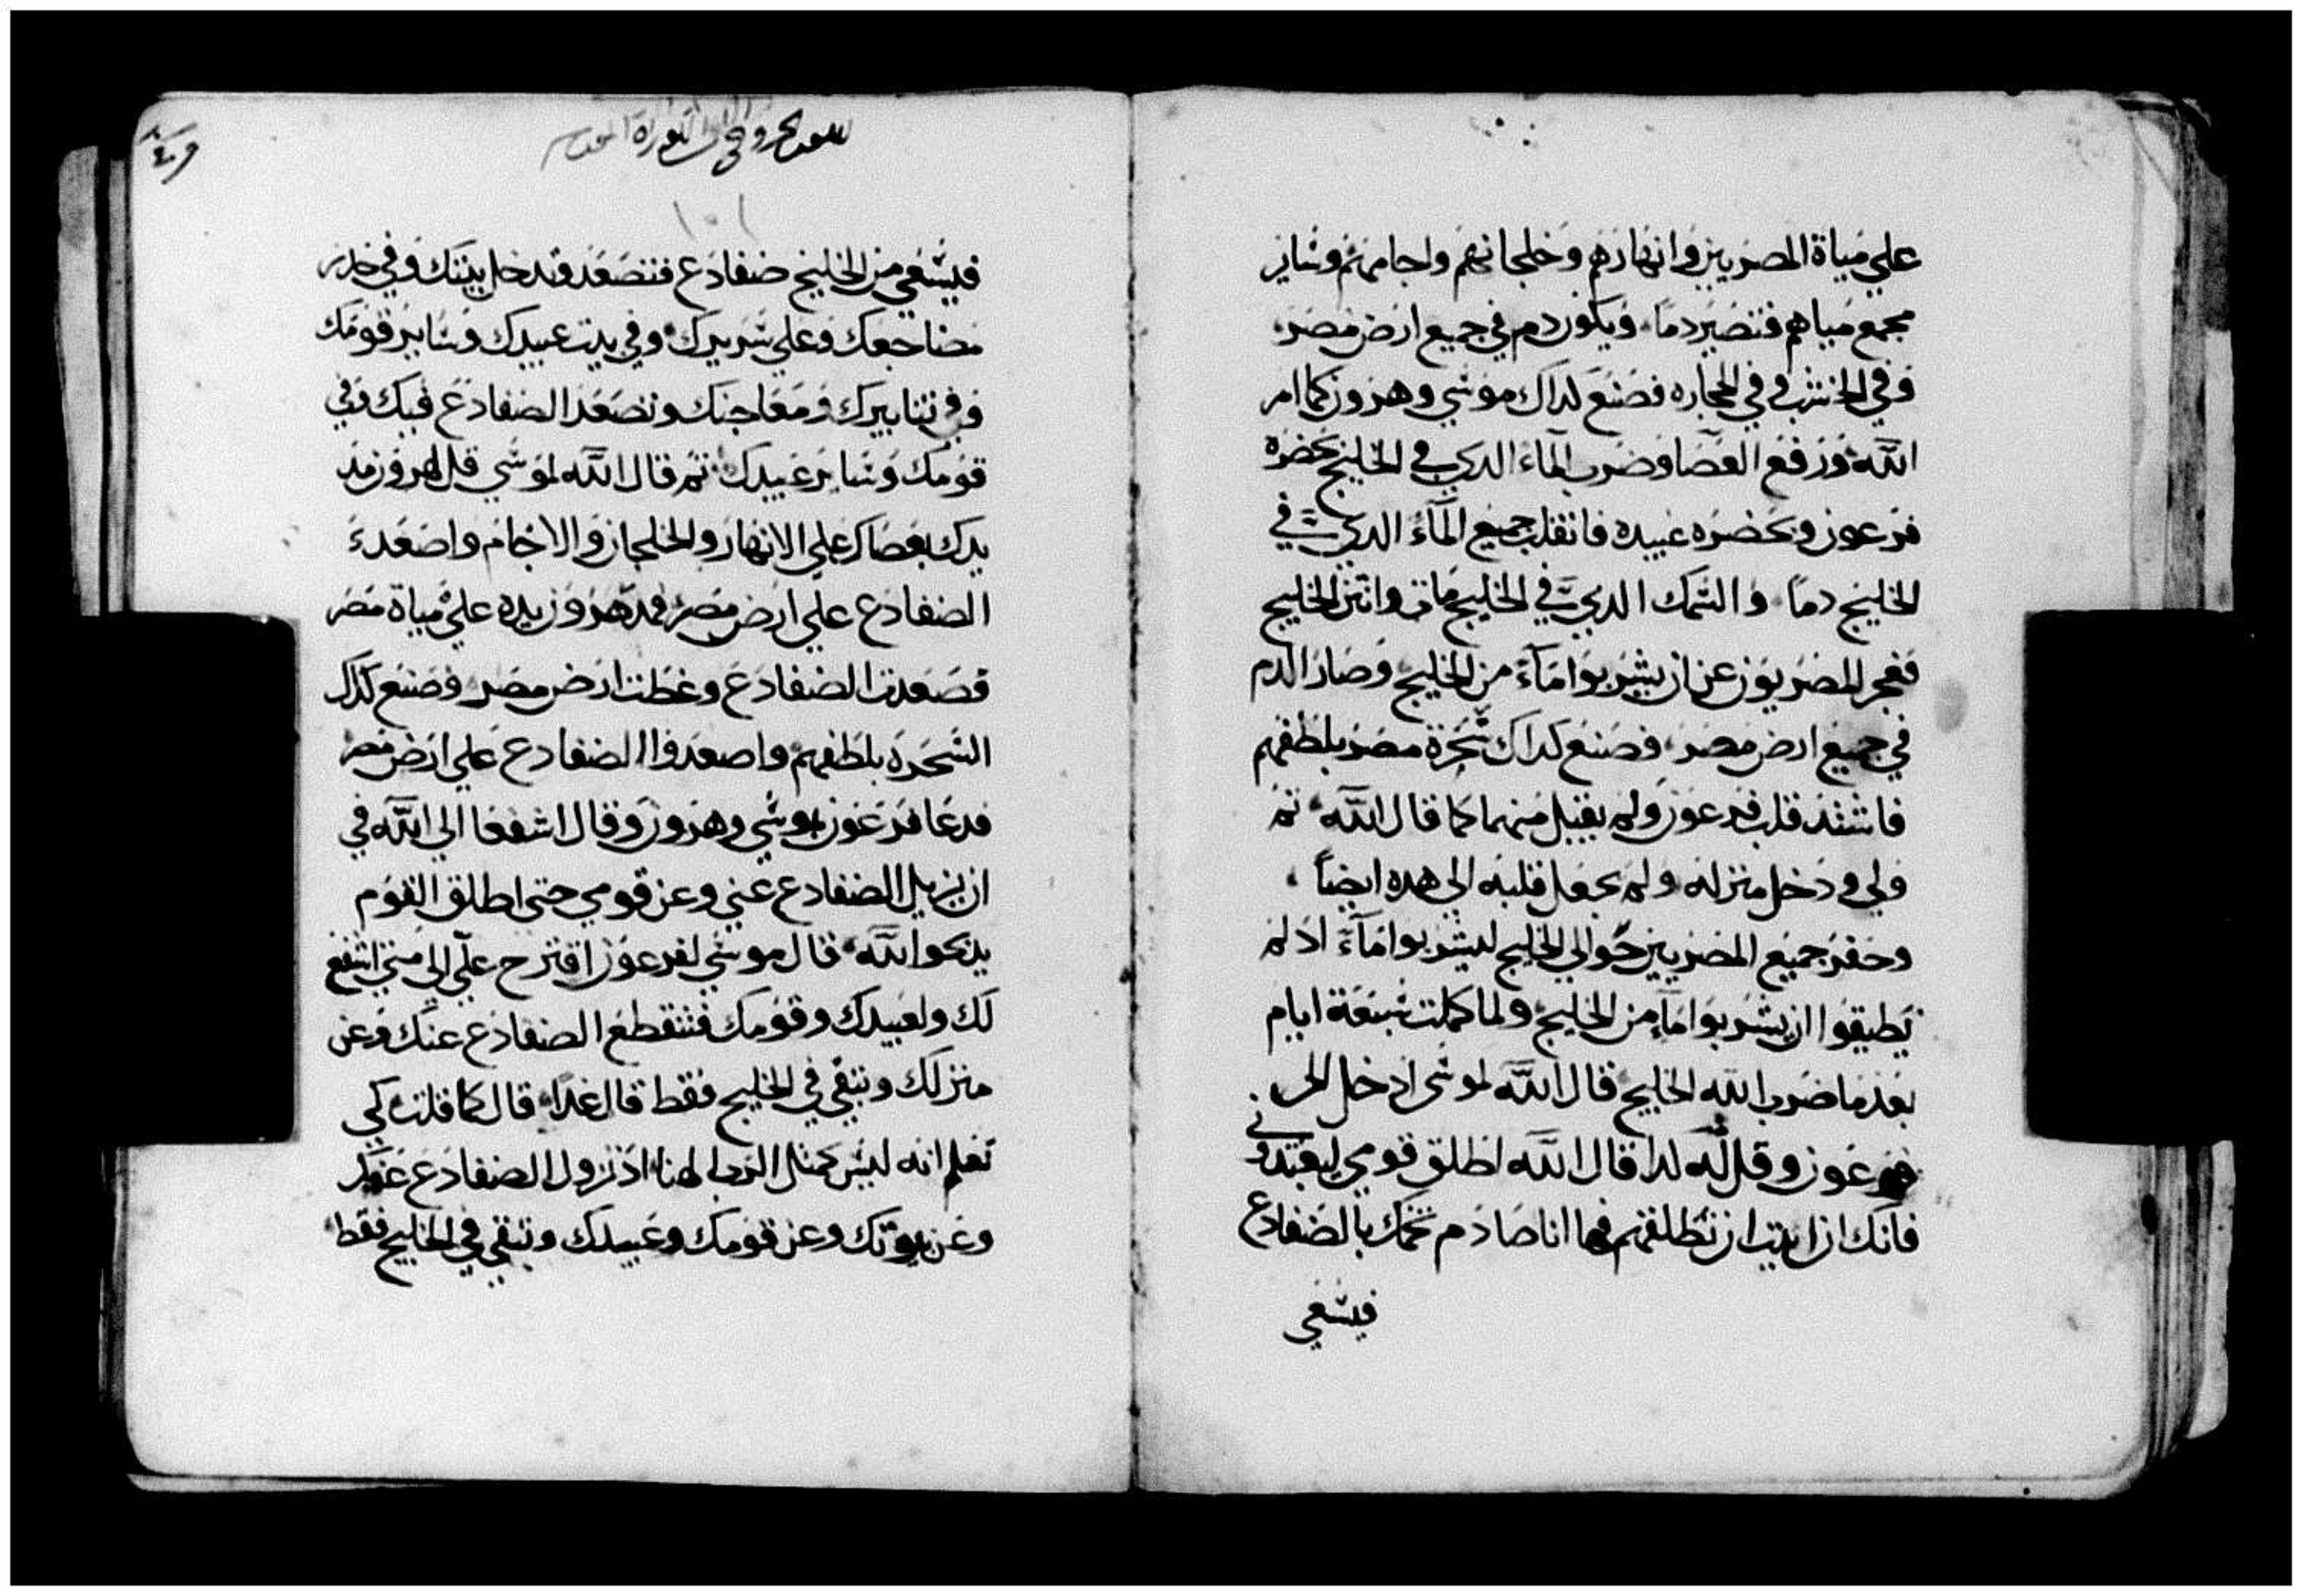 علي مياة المصريين وانهارهم وخلجانهم واجامهم وساير
مجمع مياهم فتصير دما ويكون دم في جميع ارض مصر
وفي الخشب وفي الحجاره فصنع لداك موسي وهرون كما امر
الله ورفع العصا وضرب الماء الدي في الخليج بحضره
فرعون وبحضره عبيده فانقلب جميع الماء الدي في
الخليج دما والسمك الدي في الخليج مات وانتن الخليج
فعجز المصريون عن ان يشربوا ماء من الخليج وصار الدم
في جميع ارض مصر فصنع كداك سحرة مصر بلطفهم
فاشتد قلب فرعون ولم يقبل منهما كما قال الله ثم
ولي ودخل منزله ولم يجعل قلبه الي هده ايضا
وحفر جميع المصريين حوالي الخليج ليشربوا ماء اد لم
يطيقوا ان يشربوا ماء من الخليج ولما كملت سبعة ايام
بعد ما ضرب الله الخليج قال الله لموسي ادخل الي
فرعون وقل له كدا قال الله اطلق قومي ليعبدوني
فانك ان ابيت ان تطلقهم فها انا صادم تخمك بالضفادع
فيسعي
فيسعي من الخليج ضفادع فتصعد وتدخل بيتك وفي خدر
مضاجعك وعلي سريرك وفي بيت عبيدك وساير قومك
وفي تنانيرك ومعاجنك وتصعد الضفادع فيك وفي
قومك وساير عبيدك ثم قال الله لموسي قل لهرون مد
يدك بعصاك علي الانهار والخلجان والاجام واصعد
الضفادع علي ارض مصر فمد هرون يده علي مياة مصر
فصعدت الضفادع وغطت ارض مصر وصنع كداك
السحره بلطفهم واصعدوا الضفادع علي ارض مصر
فدعا فرعون بموسي وهرون وقال اشفعا الي الله في
ان يزيل الضفادع عني وعن قومي حتي اطلق القوم
يدبحوا لله قال موسي لفرعون اقترح علي الي متي اشفع
لك ولعبيدك وقومك فتنقطع الضفادع عنك وعن
منزلك وتبقي في الخليج فقط قال غدا قال كما قلت كي
تعلم انه ليس كمثل الرب الهنا اد تزول الضفادع عنك
وعن بيوتك وعن قومك وعبيدك وتبقي في الخليج فقط